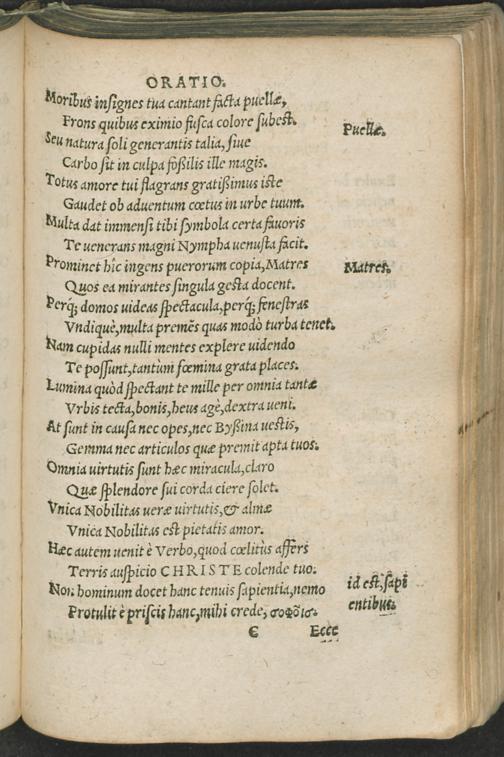 ORATIO.
Moribus insignes tua cantant facta puellæ,
Frons quibus eximio fusca colore subest.
Puellæ.
Seu natura soli generantis talia, siue
Carbo sit in culpa foßilis ille magis.
Totus amore tui flagrans gratißimus iste
Gaudet ob aduentum cœtus in urbe tuum.
Multa dat immensi tibi symbola certa fauoris
Te uenerans magni Nympha uenusta facit.
Prominet hîc ingens puerorum copia, Matres
Matres.
Quos ea mirantes singula gesta docent.
Perq́; domos uideas spectacula, perq́; fenestras
Vndiquè, multa premẽs quas modò turba tenet.
Nam cupidas nulli mentes explere uidendo
Te possunt, tantùm fœmina grata places.
Lumina quòd spectant te mille per omnia tantæ
Vrbis tecta, bonis, heus agè, dextra ueni.
At sunt in causa nec opes, nec Byßina uestis,
Gemma nec articulos quæ premit apta tuos.
Omnia uirtutis sunt hæc miracula, claro
Quæ splendore sui corda ciere solet.
Vnica Nobilitas ueræ uirtutis, & almæ
Vnica Nobilitas est pietatis amor.
Hæc autem uenit è Verbo, quod cœlitùs affers
Terris auspicio CHRISTE colende tuo.
Non hominum docet hanc tenuis sapientia, nemo
id est, sapi
Protulit è priscis hanc, mihi crede, σοφοῖσ.
entibus.
C Ecce